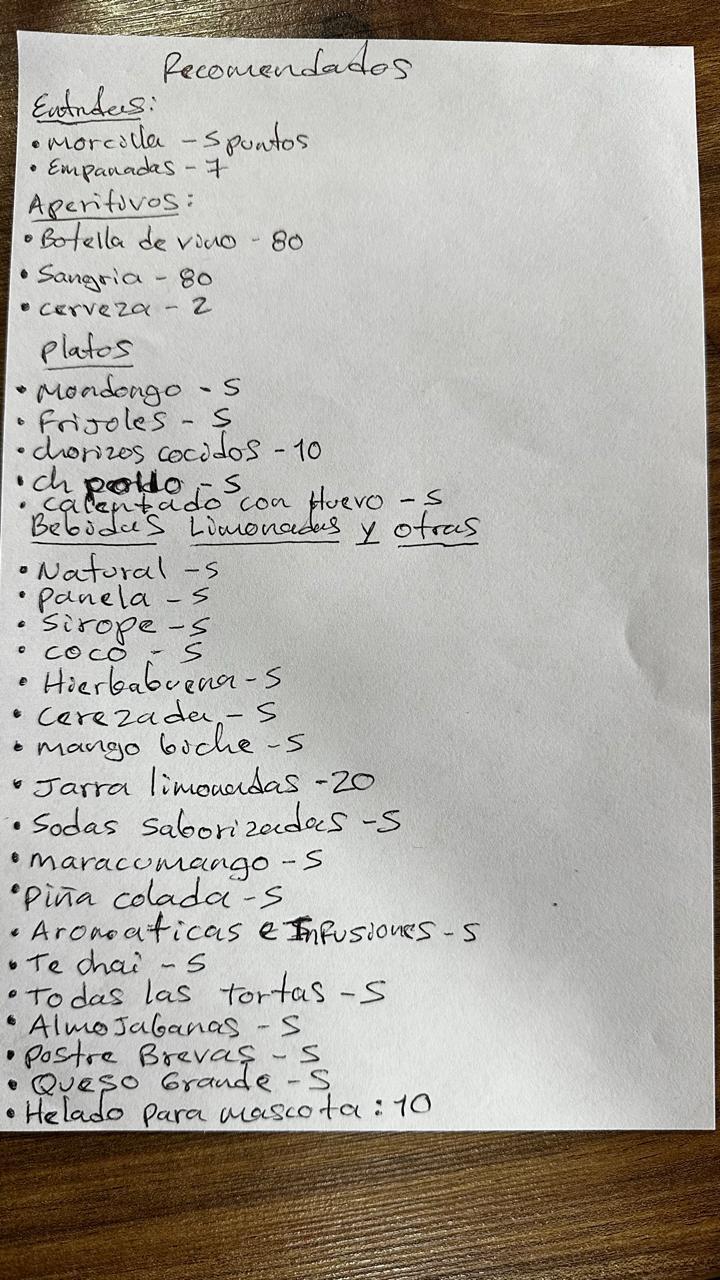 Recomendados
Entradas:
• Morcilla - 5 puntos
• Empanadas - 7
Aperitivos:
• Botella de vino - 80
• Sangria - 80
• cerveza - 2
Platos
• Mondongo - 5
• Frijoles - 5
• chorizos cocidos - 10
• ch pollo - 5
• calentado con Huevo - 5
Bebidas Limonadas y otras
• Natural - 5
• panela - 5
• Sirope - 5
• coco - 5
• Hierbabuena - 5
• Cerezada - 5
• mango biche - 5
• Jarra limonadas - 20
• Sodas saborizadas - 5
• maracumango - 5
• Piña colada - 5
• Aromaticas e Infusiones - 5
• Te chai - 5
• Todas las tortas - 5
• Almojabanas - 5
• Postre Brevas - 5
• Queso Grande - 5
• Helado para mascota : 10